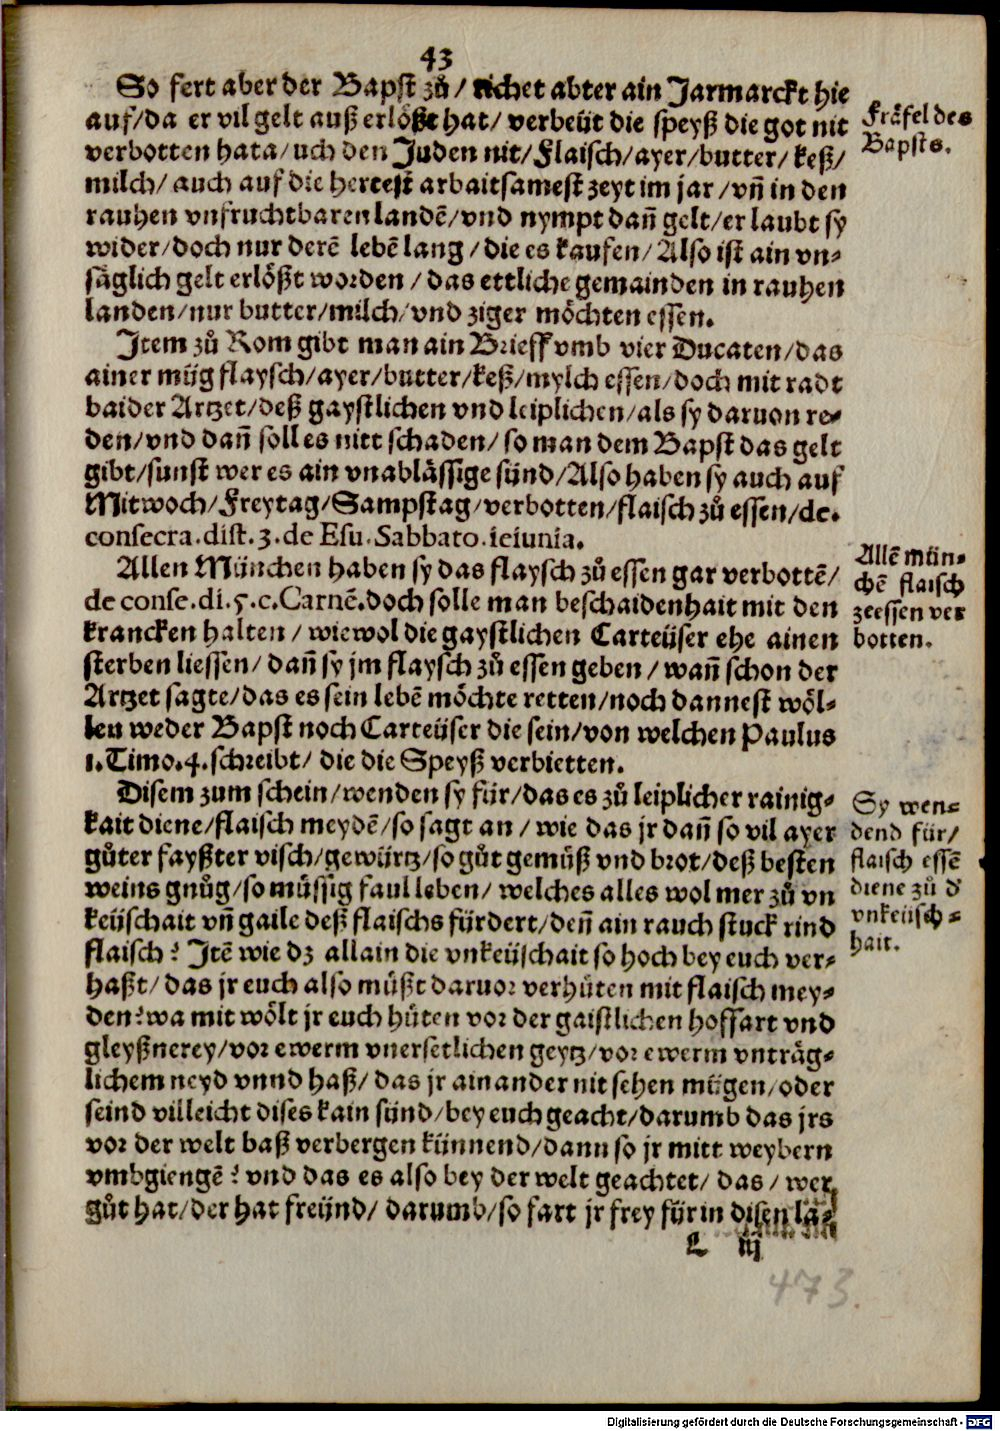 43
So fert aber der Bapst zů / richet abter ain Jarmarckt hie
auf/da er vil gelt auß erlößt hat/ verbeüt die speyß die got nit
verbotten hata/uch den Juden nit/Flaisch/ayer/butter/ keß/
milch/ auch auf die hertest arbaitsamest zeyt im jar /vñ in den
rauhen vnfruchtbaren landē/vnd nympt dañ gelt/er laubt sy
wider/doch nur derē lebē lang /die es kaufen/ Also ist ain vn⸗
säglich gelt erlößt worden /das ettliche gemainden in rauhen
landen/nur butter/milch/vnd ziger möchten essen.
Fräfel des
Bapsts.
Item zů Rom gibt man ain Brieff vmb vier Ducaten/das
ainer müg flaysch/ayer/butter/keß/mylch essen/doch mit radt
baider Artzet/deß gaystlichen vnd leiplichen/als sy daruon re⸗
den/vnd dañ soll es nitt schaden/ so man dem Bapst das gelt
gibt/sunst wer es ain vnablässige sünd/Also haben sy auch auf
Mitwoch/Freytag/Sampstag/verbotten/flaisch zů essen/de.
consecra.dist.3.de Esu.Sabbato.ieiunia.
Allen München haben sy das flaysch zů essen gar verbottē/
de conse.di.5.c.Carnē.doch solle man beschaidenhait mit den
krancken halten / wiewol die gaystlichen Carteüser ehe ainen
sterben liessen/ dañ sy jm flaysch zů essen geben /wañ schon der
Artzet sagte/das es sein lebē möchte retten/noch dannest wöl⸗
len weder Bapst noch Carteüser die sein/von welchen Paulus
1.Timo.4.schreibt/ die die Speyß verbietten.
Allē mün⸗
chē flaisch
zeessen ver
botten.
Disem zum schein/wenden sy für/das es zů leiplicher rainig⸗
kait diene/flaisch meydē/so sagt an / wie das jr dañ so vil ayer
gůter fayßter visch/gewürtz/so gůt gemüß vnd brot/deß besten
weins gnůg/so müssig faul leben/ welches alles wol mer zů vn
keüschait vñ gaile deß flaischs fürdert/deñ ain rauch stuck rind
flaisch? Itē wie dz allain die vnkeüschait so hoch bey euch ver⸗
haßt/das jr euch also müßt daruor verhüten mit flaisch mey⸗
den?wa mit wölt jr euch hüten vor der gaistlichen hoffart vnd
gleyßnerey/vor ewerm vnersetlichen geytz/vor ewerm vnträg⸗
lichem neyd vnnd haß/ das jr ainander nit sehen mügen/oder
seind villeicht dises kain sünd/bey euch geacht/darumb das jrs
vor der welt baß verbergen künnend/dann so jr mitt weybern
vmbgiengē? vnd das es also bey der welt geachtet/ das / wer
gůt hat/der hat freünd/ darumb/so fart jr frey für in disen lä⸗
Sy wen⸗
dend für/
flaisch essē
diene zů d'
vnkeüsch⸗
hait.
L iij
473.
Digitalisierung gefördert durch die Deutsche Forschungsgemeinschaft - DFG